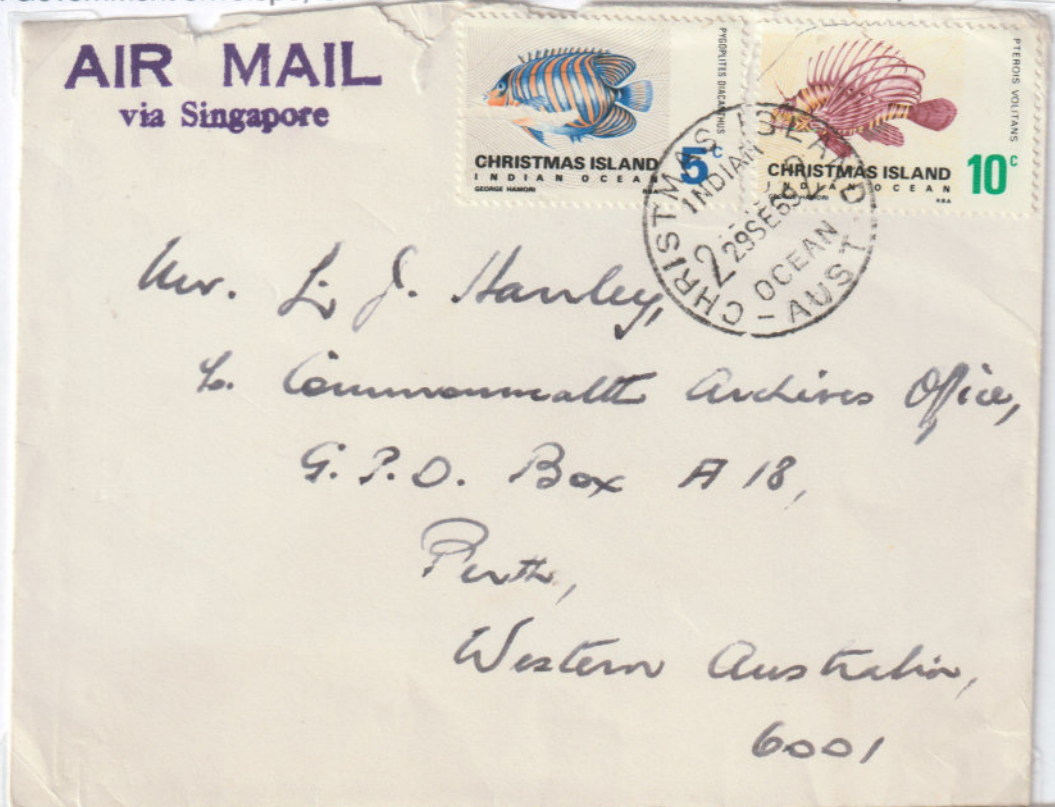 AIR MAIL
via Singapore
PYGOPLITES DIACANTHUS
CHRISTMAS ISLAND 5c
INDIAN OCEAN
GEORGE HAMORI
R.B.A.
PTEROIS VOLITANS
CHRISTMAS ISLAND 10c
INDIAN OCEAN
R.B.A.
CHRISTMAS ISLAND
INDIAN
29SE69
2
OCEAN
- AUST
Mr. L. J. Hanley,
c/o. Commonwealth Archives Office,
G.P.O. Box A 18,
Perth,
Western Australia,
6001